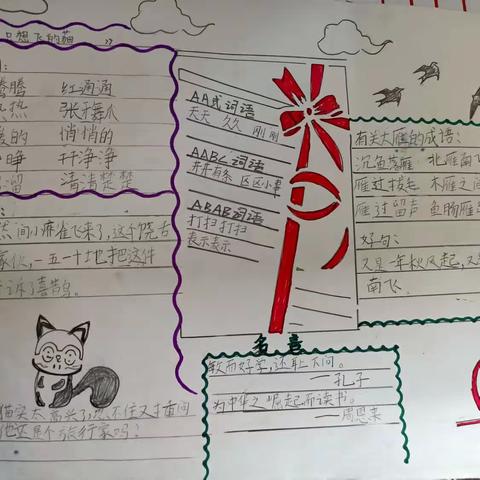 只想飞的猫
腾腾 红通通
热 张牙舞爪
的 悄悄的
睁 干干净净
溜 清清楚楚
然间小麻雀飞来了,这个饶舌
家伙,一五一十地把这件
诉了喜鹊。
猫实太高兴了,忍不住又才重问
他还是个旅行家吗?
AA式词语
天天 久久 刚刚
AABC词语
井井有条 区区小事
ABAB词语
打扫打扫
表示表示
名言
敏而好学,还耻下问。
——孔子
为中华之崛起而读书。
——周恩来
有关大雁的成语:
沉鱼落雁 北雁南飞
雁过拔毛 木雁之间
雁过留声 鱼肠雁
好句:
又是一年秋风起,又
南飞.